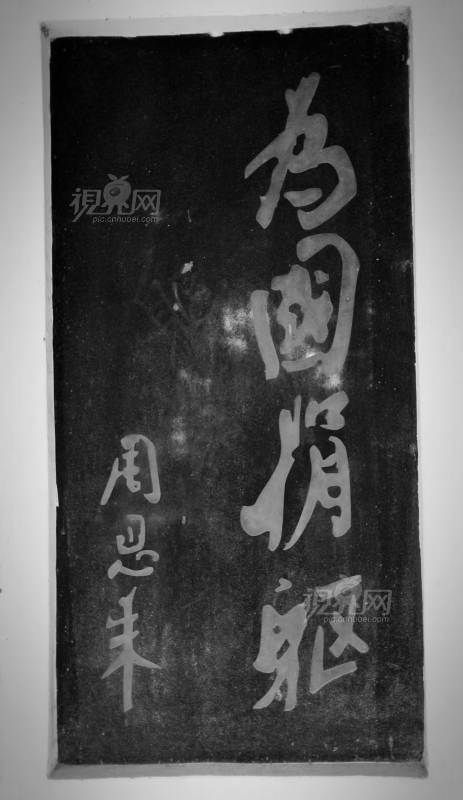 为國捐躯
周恩来
視覚网
pic.cnhubei.com
視覚网
pic.cnhubei.com